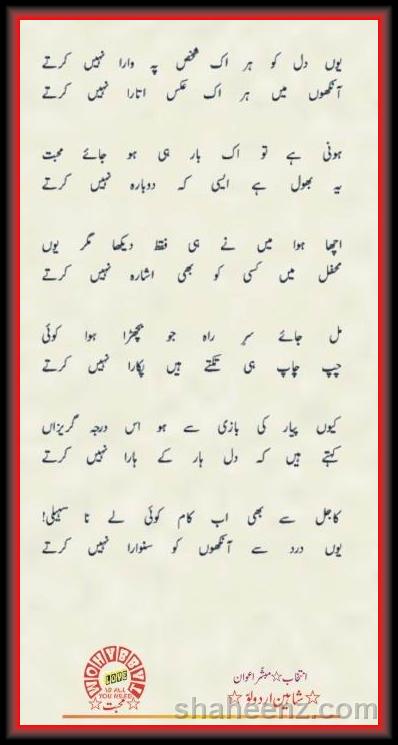 یوں دل کو ہر اک شخص پہ وارا نہیں کرتے
آنکھوں میں ہر اک عکس اتارا نہیں کرتے
ہونی ہے تو اک بار ہی ہو جائے محبت
یہ بھول ہے ایسی کہ دوبارہ نہیں کرتے
اچھا ہوا میں نے ہی فقط دیکھا مگر یوں
محفل میں کسی کو بھی اشارہ نہیں کرتے
مل جائے سرِ راہ جو بچھڑا ہوا کوئی
چپ چاپ ہی تکتے ہیں پکارا نہیں کرتے
کیوں پیار کی بازی سے ہو اس درجہ گریزاں
کہتے ہیں کہ دل ہار کے ہارا نہیں کرتے
کاجل سے بھی اب کام کوئی لے نا سہیلی!
یوں درد سے آنکھوں کو سنوارا نہیں کرتے
انتخاب☆مبشر اعوان
☆شاہین اردو لو☆
LOVE
IS ALL
YOU NEED
☆محبت☆
shaheenz.com